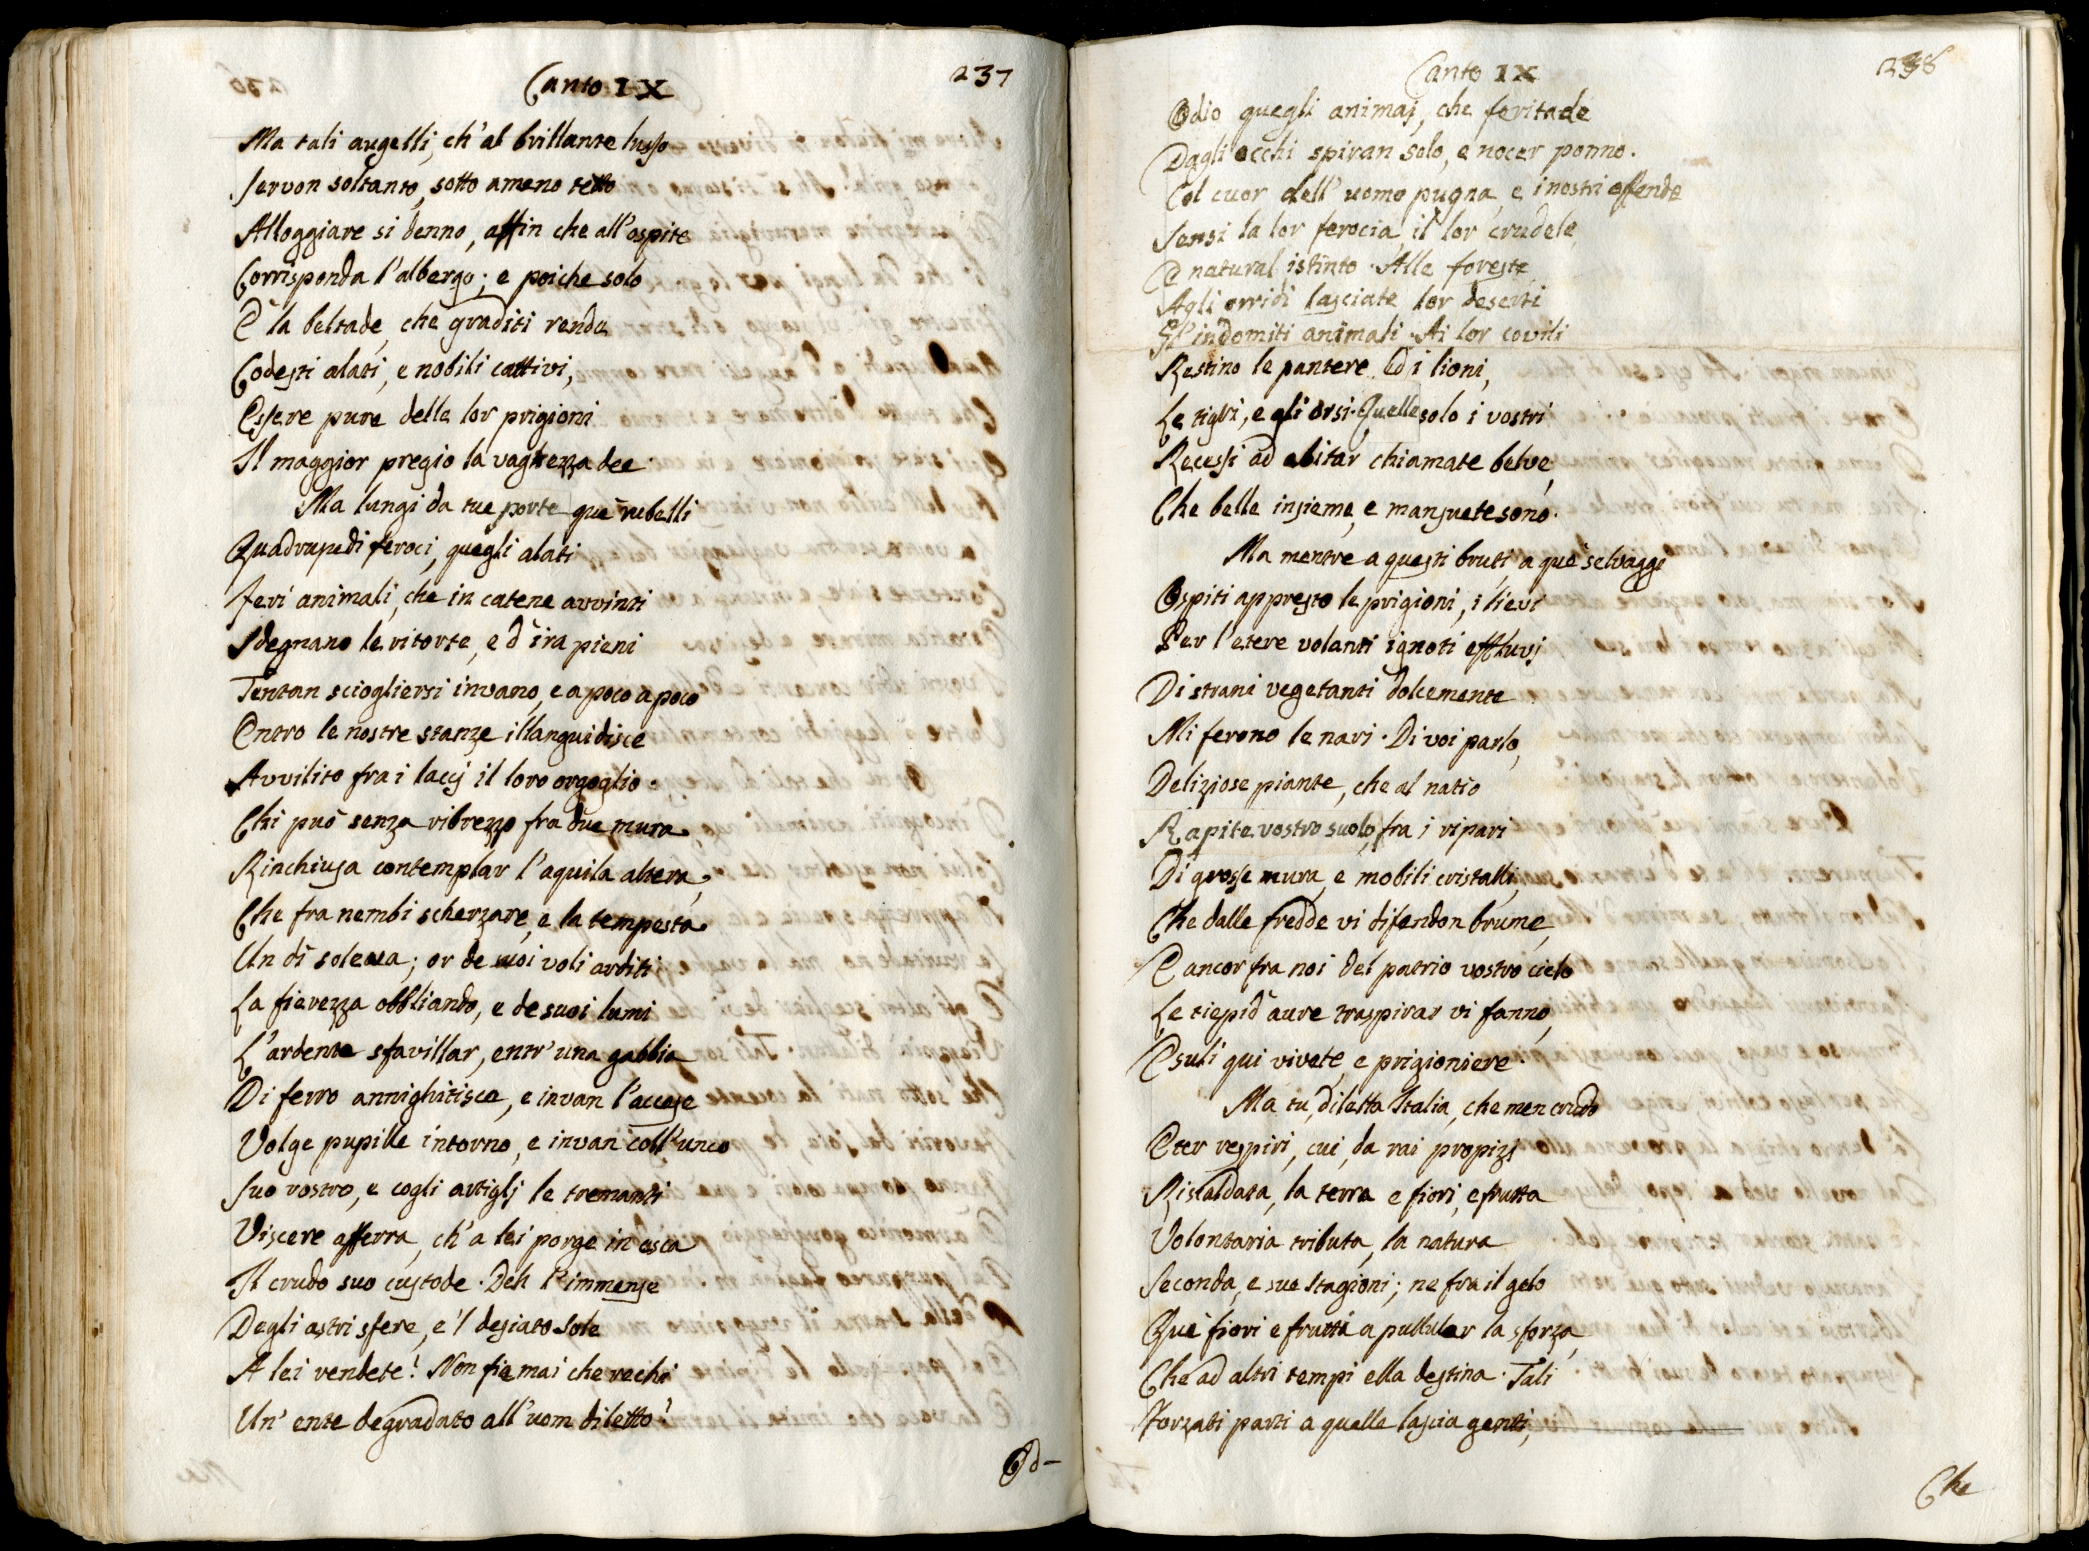 Canto IX
237
Ma tali augelli, ch'al brillante lusso
Servon soltanto, sotto ameno tetto
Alloggiare si denno, affin che all'ospite
Corrisponda l'albergo; e poiche solo
È la beltade, che graditi rende
Codesti alati, e nobili cattivi,
Essere pure delle lor prigioni
Il maggior pregio la vaghezza dee.
Ma lungi da tue porte que rubelli
Quadrupedi feroci, quegli alati
Feri animali, che in catene avvinti
Sdegnano le ritorte, e d'ira pieni
Tentan sciogliersi invano, e a poco a poco
Entro le nostre stanze illanguidisce
Avvilito fra i laccj il loro orgoglio.
Chi può senza ribrezzo fra due mura
Rinchiusa contemplar l'aquila altera,
Che fra nembi scherzare, e la tempesta
Un dì soleva; or de suoi voli arditi
La fierezza obbliando, e de suoi lumi
L'ardente sfavillar, entr'una gabbia
Di ferro annighitisce, e invan l'accese
Volge pupille intorno, e invan coll'unco
Suo rostro, e cogli artiglj le tremanti
Viscere afferra, ch'a lei porge in esca
Il crudo suo custode. Deh l'immense
Degli astri sfere, e'l desiato Sole
A lei rendete! Non fia mai che rechi
Un' ente degradato all'uom diletto!
Od-
Canto IX
238
Odio quegli animaj, che feritade
Dagli occhi spiran solo, e nocer ponno.
Col cuor dell'uomo pugna, e i nostri offende
Sensi la lor ferocia, il lor crudele
È natural istinto. Alle foreste
Agli orridi lasciate lor deserti
Gl'indomiti animali. Ai lor covili
Restino le pantere, ed i lioni,
Le tigri, e gli orsi. Quelle solo i vostri
Recessi ad abitar chiamate belve,
Che belle insieme, e mansuete sono.
Ma mentre a questi bruti, a que selvaggi
Ospiti appresto le prigioni, i lievi
Per l'etere volanti ignoti effluvj
Di strani vegetanti dolcemente
Mi ferono le nari. Di voi parlo,
Deliziose piante, che al natio
Rapite vostro suolo, fra i ripari
Di grosse mura, e mobili cristalli,
Che dalle fredde vi difendon brume,
E ancor fra noi del patrio vostro cielo
Le tiepid'aure traspirar vi fanno,
Esuli qui vivete, e prigioniere.
Ma tu, diletta Italia, che men crudo
Eter respiri, cui, da rai propizj
Riscaldata, la terra e fiori, e frutta
Volontaria tributa, la natura
Seconda, e sue stagioni; ne fra il gelo
Que fiori e frutti a pullular la sforza,
Che ad altri tempi ella destina. Tali
Forzati parti a quelle lascia genti,
Che